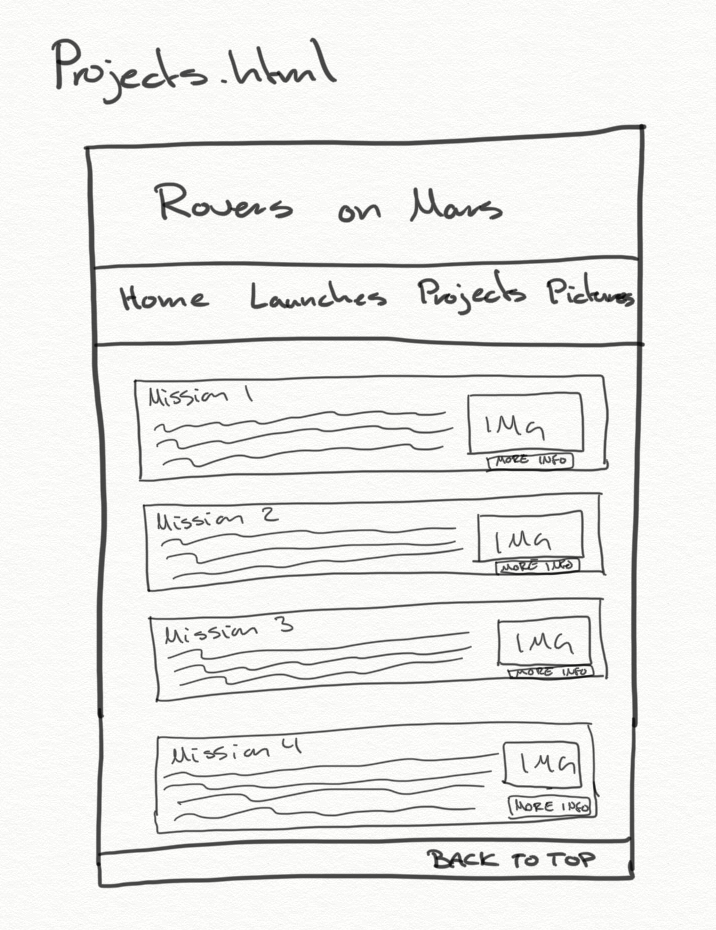 Projects.html
Rovers on Mars
Home Launches Projects Pictures
Mission 1
IMG
MORE INFO
Mission 2
IMG
MORE INFO
Mission 3
IMG
MORE INFO
Mission 4
IMG
MORE INFO
BACK TO TOP